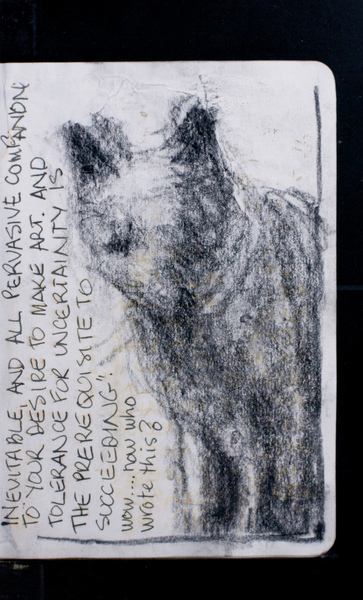 INEVITABLE, AND ALL PERVASIVE COMPANION
TO YOUR DESIRE TO MAKE ART. AND
TOLERANCE FOR UNCERTAINTY IS
THE PREREQUISITE TO
SUCCEEDING"
wow.... now who
wrote this?